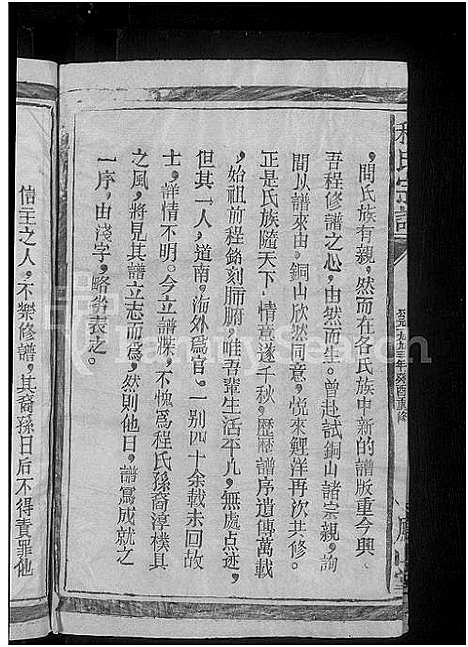 程氏宗譜
公元一九九三年癸酉重修
，間氏族有親，然而在各氏族中新的譜版重今興、
吾程修譜之心，由然而生。曾赴試銅山諸宗親，詢
問以譜來由。銅山欣然同意，悅來鯉洋再次共修。
正是氏族隨天下，情意遂千秋，歷歷譜序遺傳萬載
，始祖前程銘刻肺腑，唯吾輩生活平凡，無處点迹，
但其一人，道南，海外為官。一别四十余載未回故
士，詳情不明。今立譜牒，不愧爲程氏孫裔淳樸其
之風，將見其譜立志而爲，然則他日，譜寫成就之
一序，由淺字，略畧表之。
信主之人，不樂修譜，其裔孫日后不得責罪他
FamilySearch